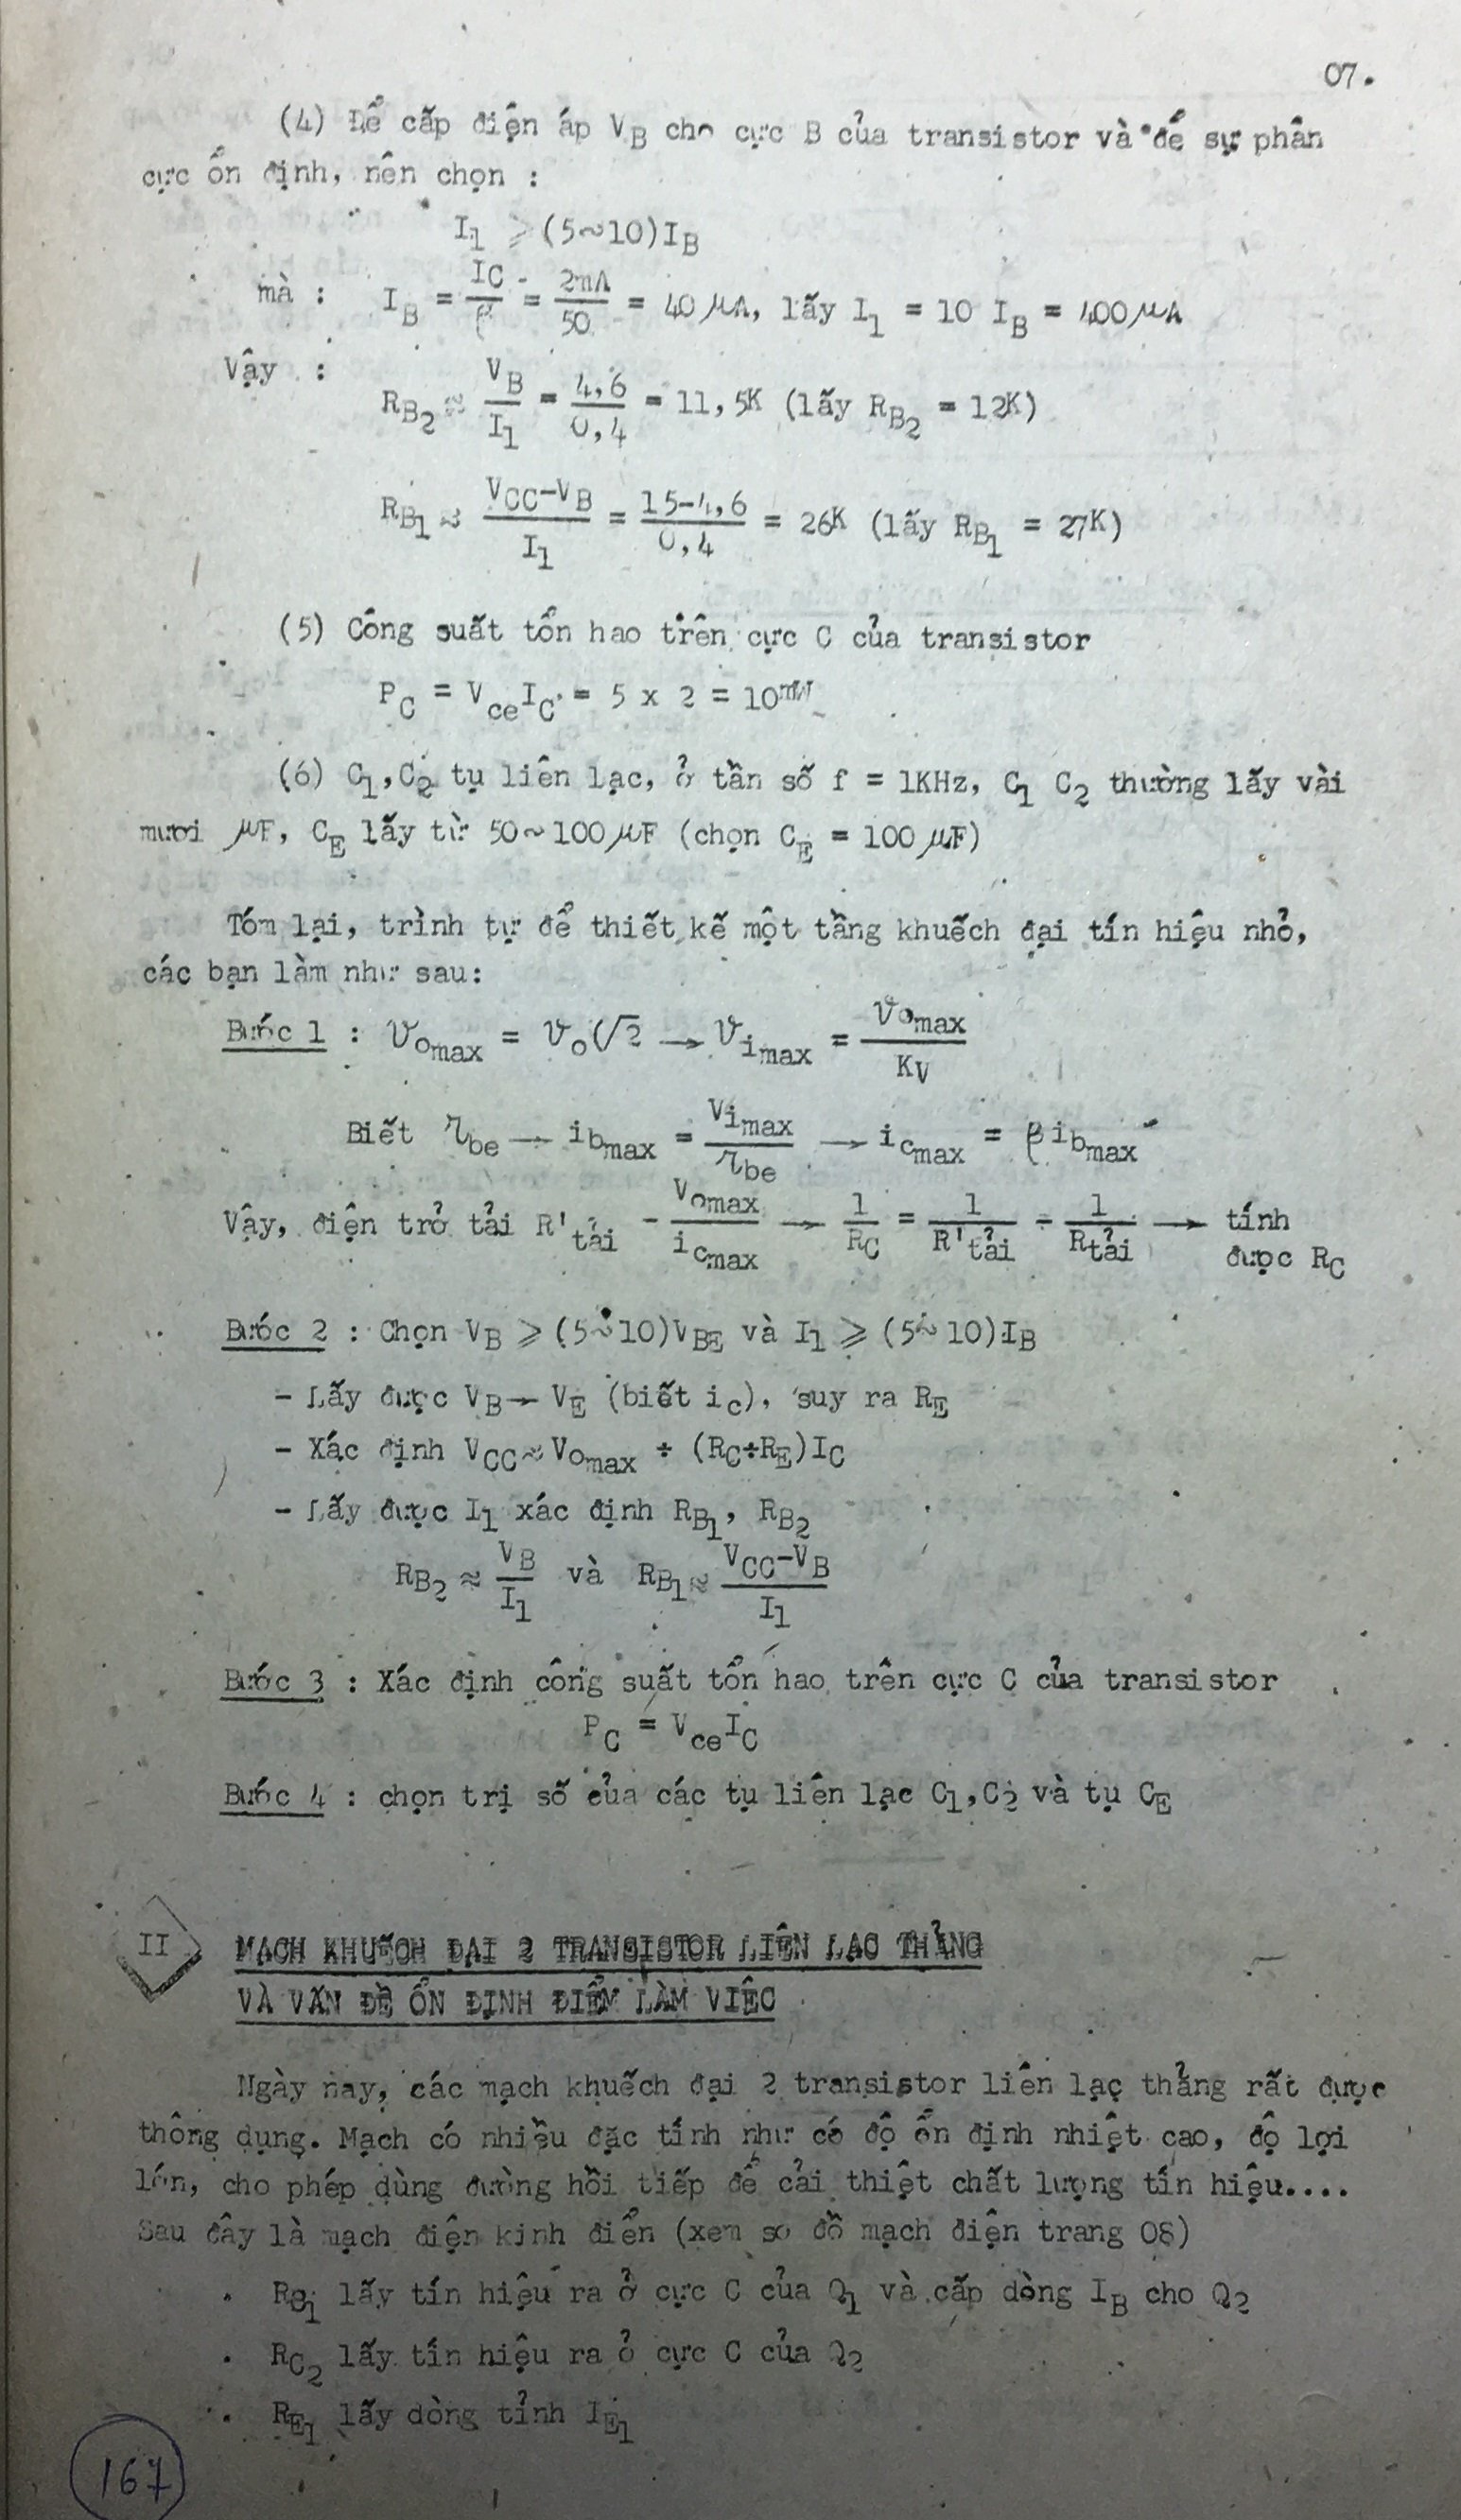 07.
(4) Để cấp điện áp VB cho cực B của transistor và để sự phân
cực ổn định, nên chọn :
I1 ⩾ (5~10)IB
mà : IB = IC/β = 2mA/50 = 40 μA, lấy I1 = 10 IB = 400 μA
Vậy : RB2 ≈ VB/I1 = 4,6/0,4 = 11,5K (lấy RB2 = 12K)
RB1 ≈ (VCC-VB)/I1 = (15-4,6)/0,4 = 26K (lấy RB1 = 27K)
(5) Công suất tổn hao trên cực C của transistor
PC = Vce IC = 5 x 2 = 10mW
(6) C1,C2 tụ liên lạc, ở tần số f = 1KHz, C1 C2 thường lấy vài
mươi μF, CE lấy từ 50~100 μF (chọn CE = 100 μF)
Tóm lại, trình tự để thiết kế một tầng khuếch đại tín hiệu nhỏ,
các bạn làm như sau:
Bước 1 : vomax = vo√2 → vimax = vomax/KV
Biết rbe → ibmax = vimax/rbe → icmax = β ibmax
Vậy, điện trở tải R'tải = vomax/icmax → 1/RC = 1/R'tải - 1/Rtải → tính
được RC
Bước 2 : Chọn VB ⩾ (5~10)VBE và I1 ⩾ (5~10)IB
- Lấy được VB → VE (biết ic), suy ra RE
- Xác định VCC ≈ Vomax + (RC+RE)IC
- Lấy được I1 xác định RB1, RB2
RB2 ≈ VB/I1 và RB1 ≈ (VCC-VB)/I1
Bước 3 : Xác định công suất tổn hao trên cực C của transistor
PC = Vce IC
Bước 4 : chọn trị số của các tụ liên lạc C1,C2 và tụ CE
II MẠCH KHUẾCH ĐẠI 2 TRANSISTOR LIÊN LẠC THẲNG
VÀ VẤN ĐỀ ỔN ĐỊNH ĐIỂM LÀM VIỆC
Ngày nay, các mạch khuếch đại 2 transistor liên lạc thẳng rất được
thông dụng. Mạch có nhiều đặc tính như có độ ổn định nhiệt cao, độ lợi
lớn, cho phép dùng đường hồi tiếp để cải thiệt chất lượng tín hiệu....
Sau đây là mạch điện kinh điển (xem sơ đồ mạch điện trang 08)
. RC1 lấy tín hiệu ra ở cực C của Q1 và cấp dòng IB cho Q2
. RC2 lấy tín hiệu ra ở cực C của Q2
. RE1 lấy dòng tỉnh IE1
167